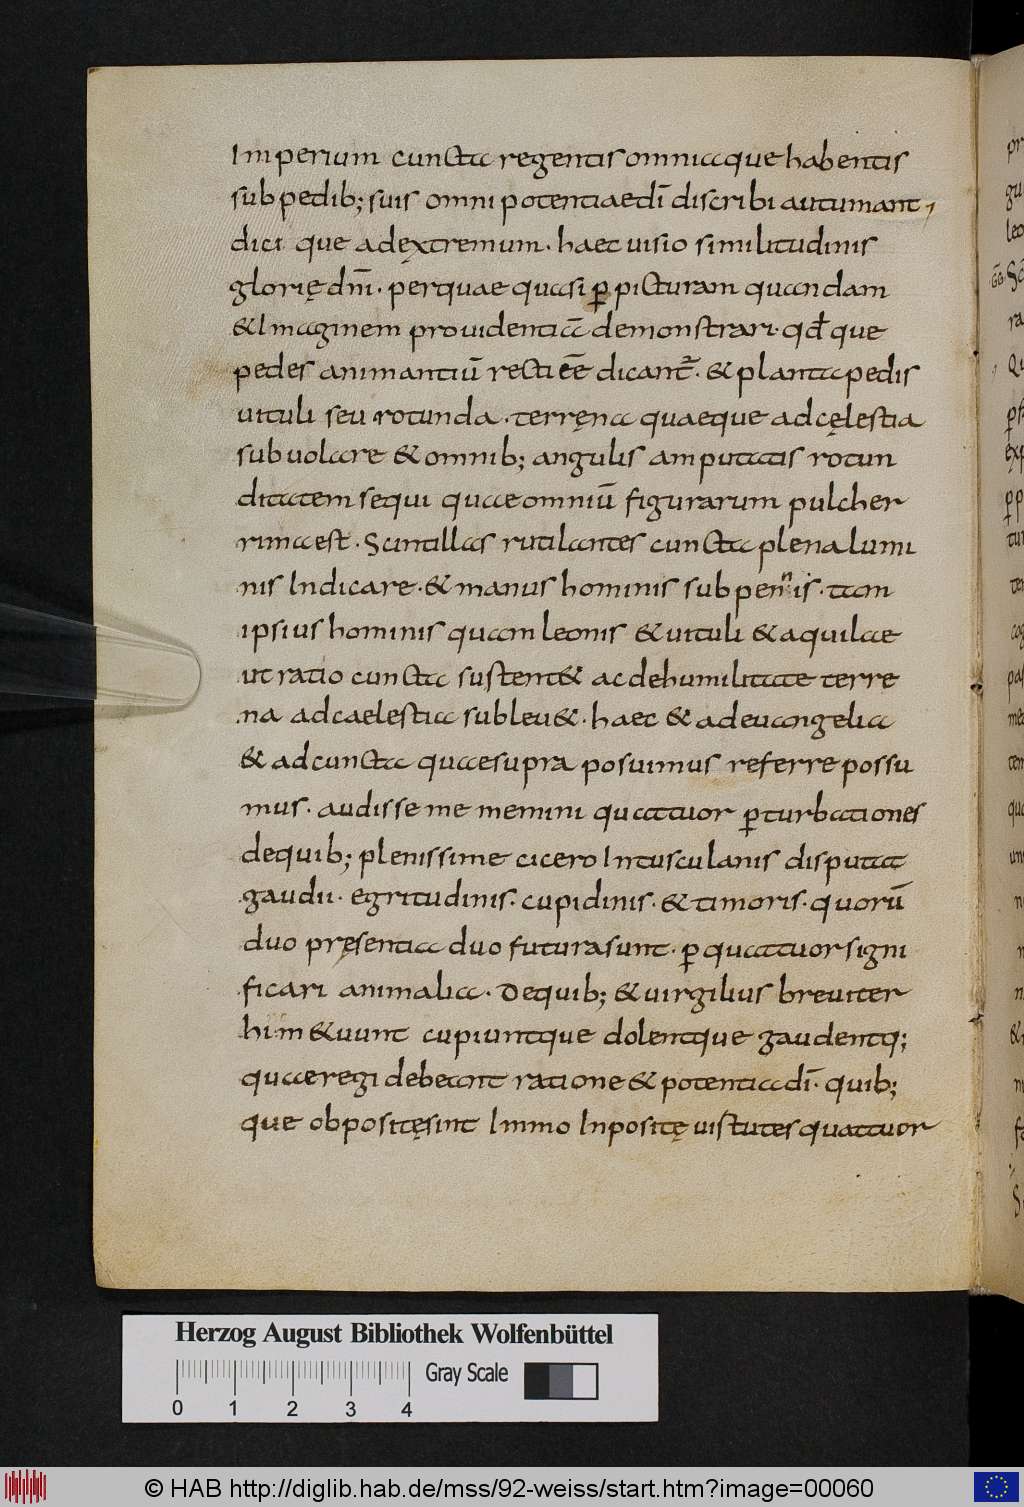 Imperium cuncta regentis omniaque habentis
sub pedib; suis omnipotentiae dī discribi autumant,
dici que ad extremum. haec uisio similitudinis
glorię dn̄i. per quae quasi ꝑ picturam quandam
& Imaginem prouidentiā demonstrari. qđ que
pedes animantiū recti eē dicant᷑. & planta pedis
uituli seu rotunda. terręna quaeque ad cęlestia
subuolare & omnib; angulis amputatis rotun
ditatem sequi quae omniū figurarum pulcher
rima est. Scintillas rutilantes cuncta plena lumi
nis Indicare. & manus hominis sub pennis. tam
ipsius hominis quam leonis & uituli & aquilae
ut ratio cuncta sustent& ac de humilitate terre
na ad caelestia subleu&. haec & ad euangelia
& ad cuncta quae supra posuimus referre possu
mus. audisse me memini quattuor ꝑturbationes
de quib; plenissime cicero In tusculanis disputat
gaudii. egritudinis. cupidinis. & timoris. quorū
duo pręsentia duo futura sunt. ꝑ quattuor signi
ficari animalia. De quib; & uirgilius breuiter
hi m&uunt cupiuntque dolentque gaudentq;
quae regi debeant ratione & potentia dī. quib;
que obpositęsint Immo Inpositę uistutes quattuor
Herzog August Bibliothek Wolfenbüttel
Gray Scale
0 1 2 3 4
© HAB http://diglib.hab.de/mss/92-weiss/start.htm?image=00060